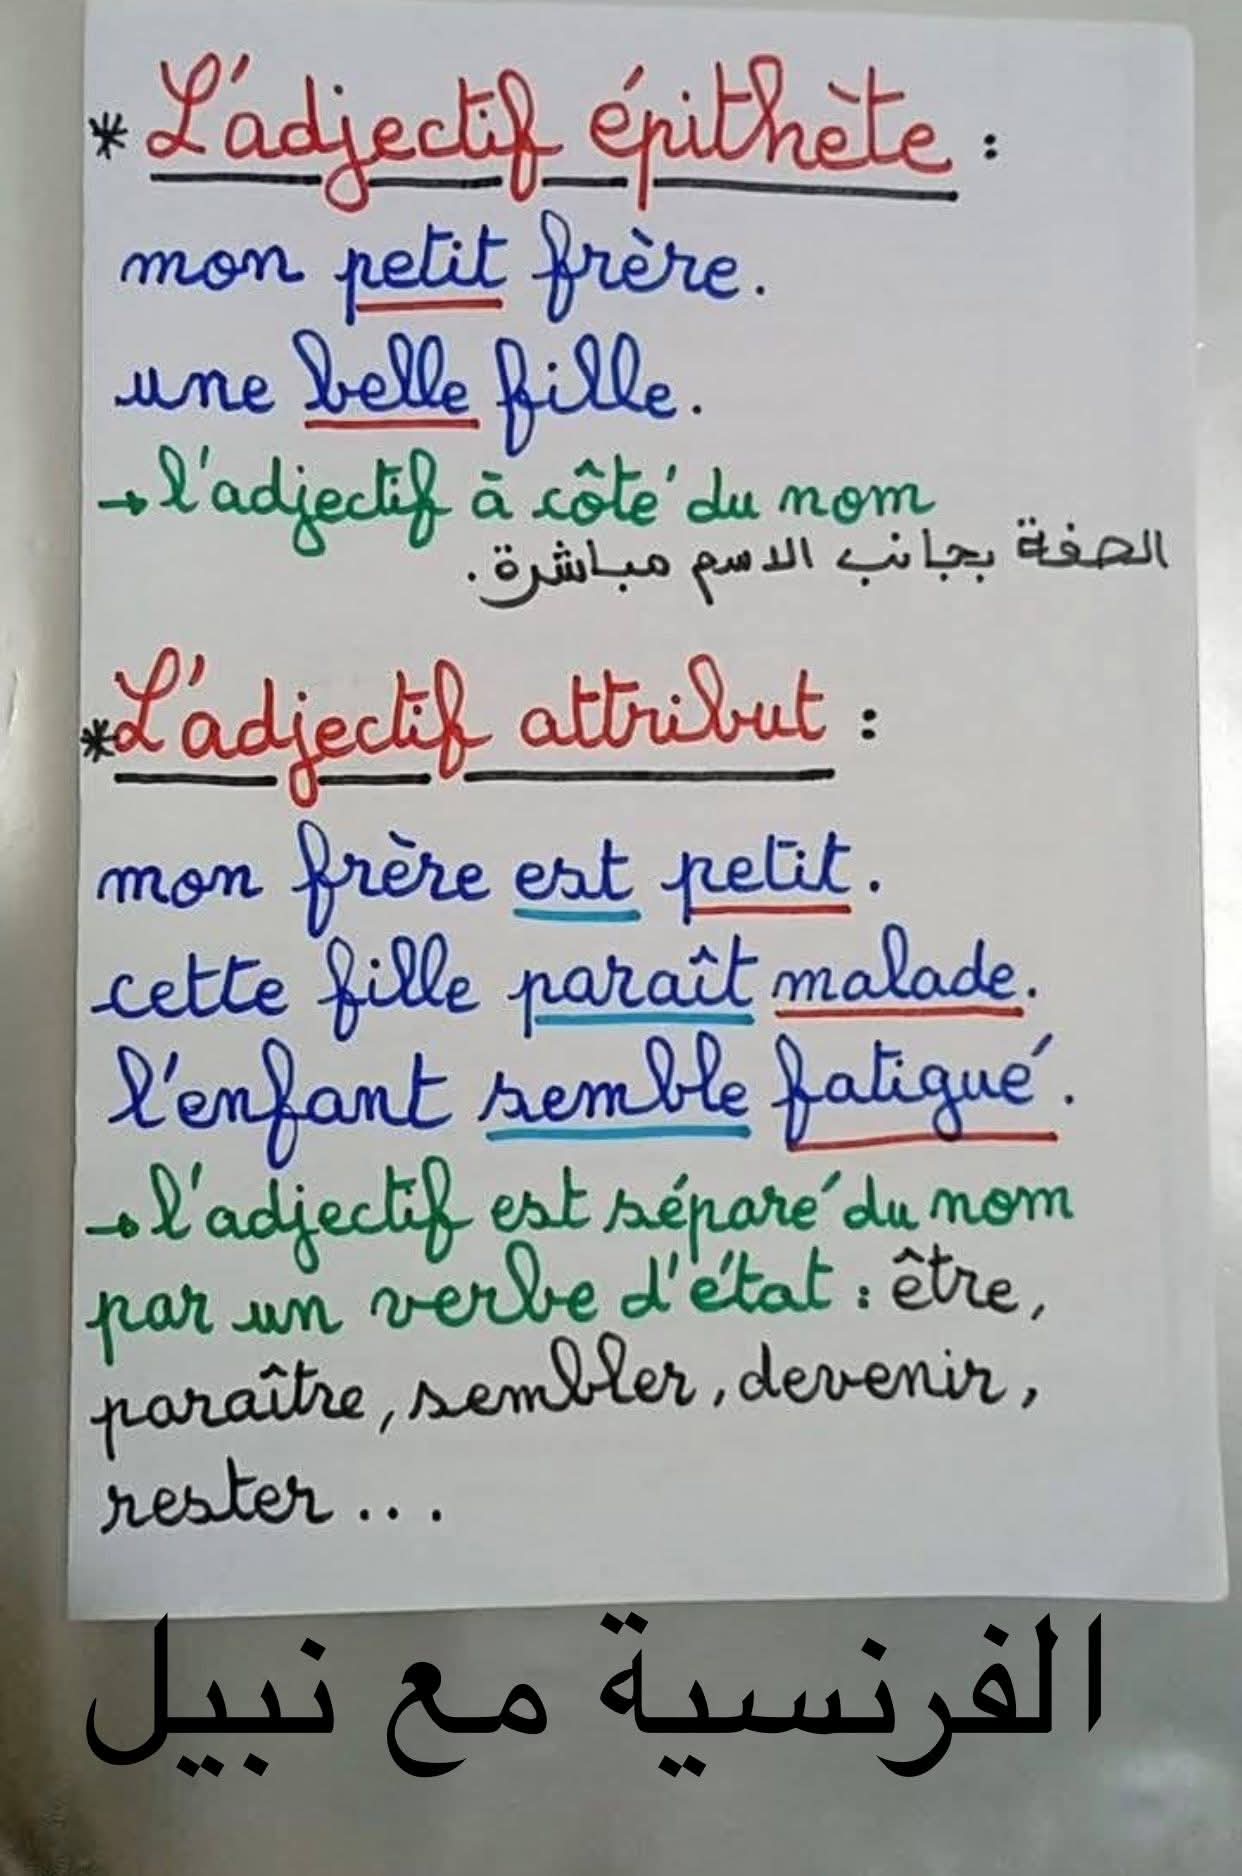 * L'adjectif épithète :
mon petit frère.
une belle fille.
→ l'adjectif à côté du nom
الصفة بجانب الاسم مباشرة.
* L'adjectif attribut :
mon frère est petit.
cette fille paraît malade.
l'enfant semble fatigué.
→ l'adjectif est séparé du nom
par un verbe d'état : être,
paraître, sembler, devenir,
rester...
الفرنسية مع نبيل